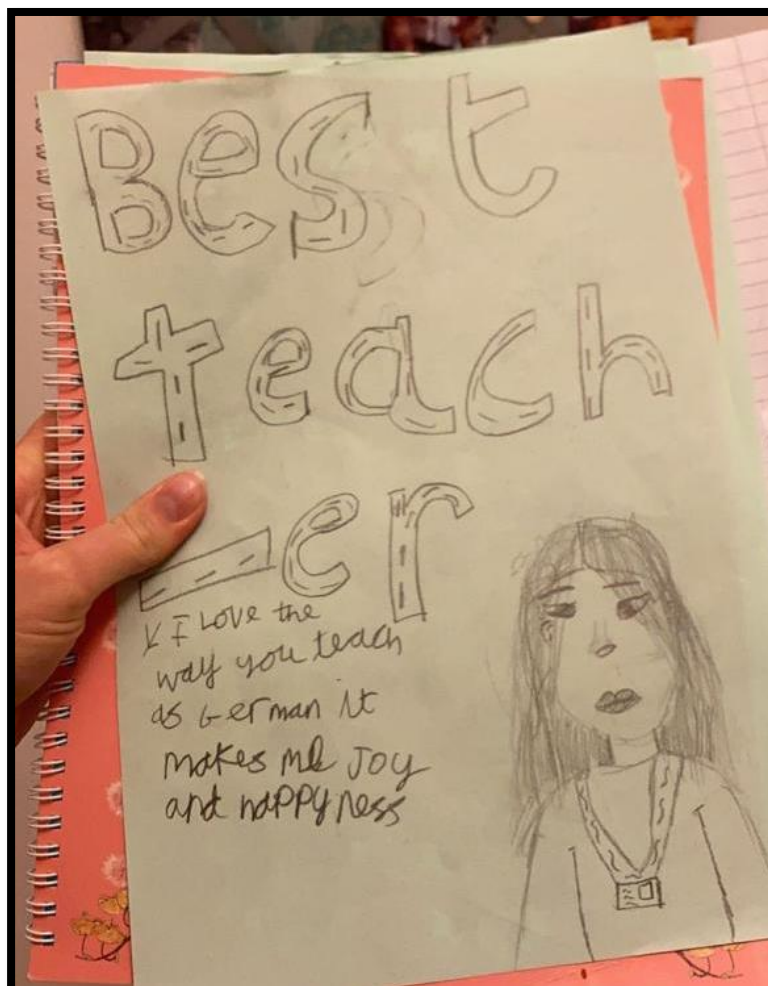 Best
teach
-er
I Love the
way you teach
as German it
makes me Joy
and happyness